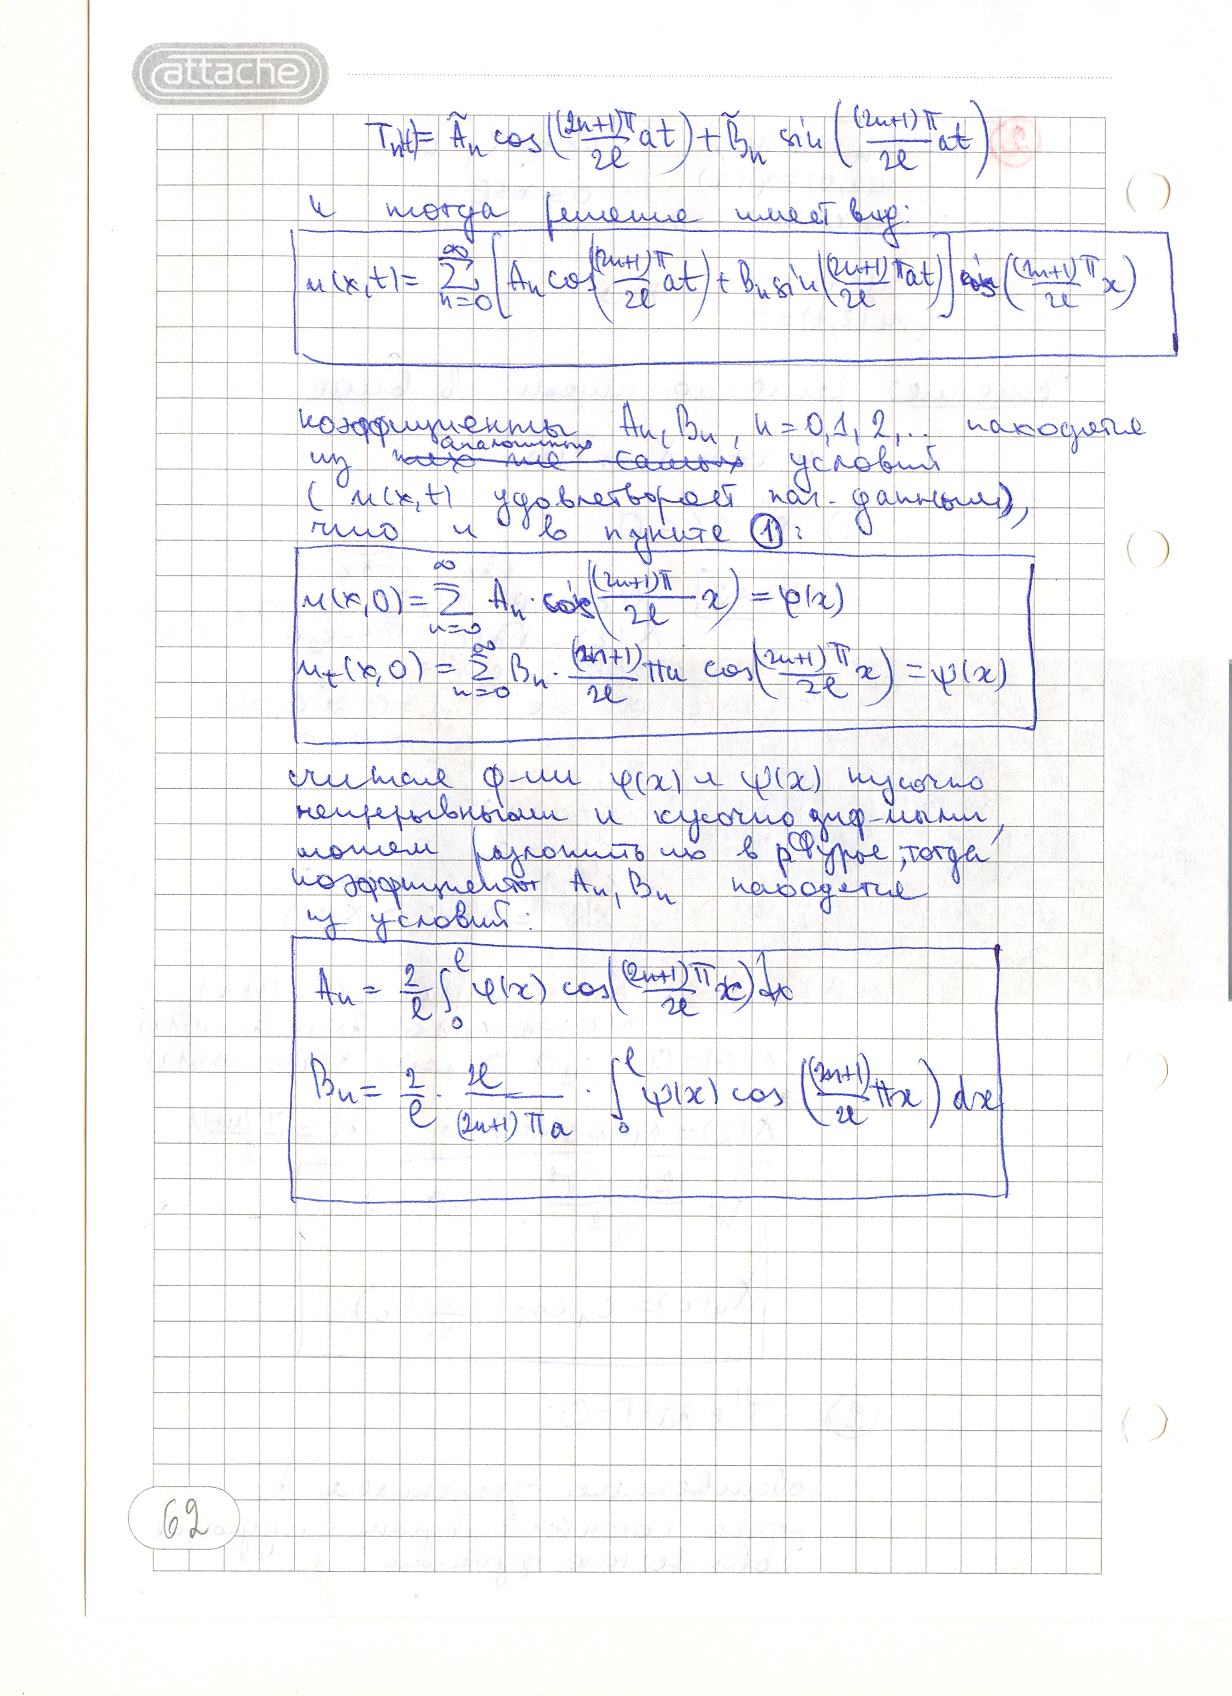 attache
Tn(t)= Ãn cos((2n+1)π/2l at) + B̃n sin((2n+1)π/2l at)
и тогда решение имеет вид:
u(x,t) = ∞ Σ n=0 [An cos((2n+1)π/2l at) + Bn sin((2n+1)π/2l at)] cos((2n+1)π/2l x)
коэффициенты An, Bn, n = 0,1,2,.. находятся
аналогичных
из тех же самых условий
(u(x,t) удовлетворяет нач. данным),
что и в пункте ①:
u(x,0) = ∞ Σ n=0 An · cos((2n+1)π/2l x) = φ(x)
ut(x,0) = ∞ Σ n=0 Bn · (2n+1)/2l πa cos((2n+1)π/2l x) = ψ(x)
считая ф-ии φ(x) и ψ(x) кусочно
непрерывными и кусочно диф-мыми,
можем разложить их в р Фурье, тогда
коэффициент An, Bn находятся
из условий:
An = 2/l ∫₀^l φ(x) cos((2n+1)π/2l x) dx
Bn = 2/l · 2l/(2n+1)πa · ∫₀^l ψ(x) cos((2n+1)/2l πx) dx
62